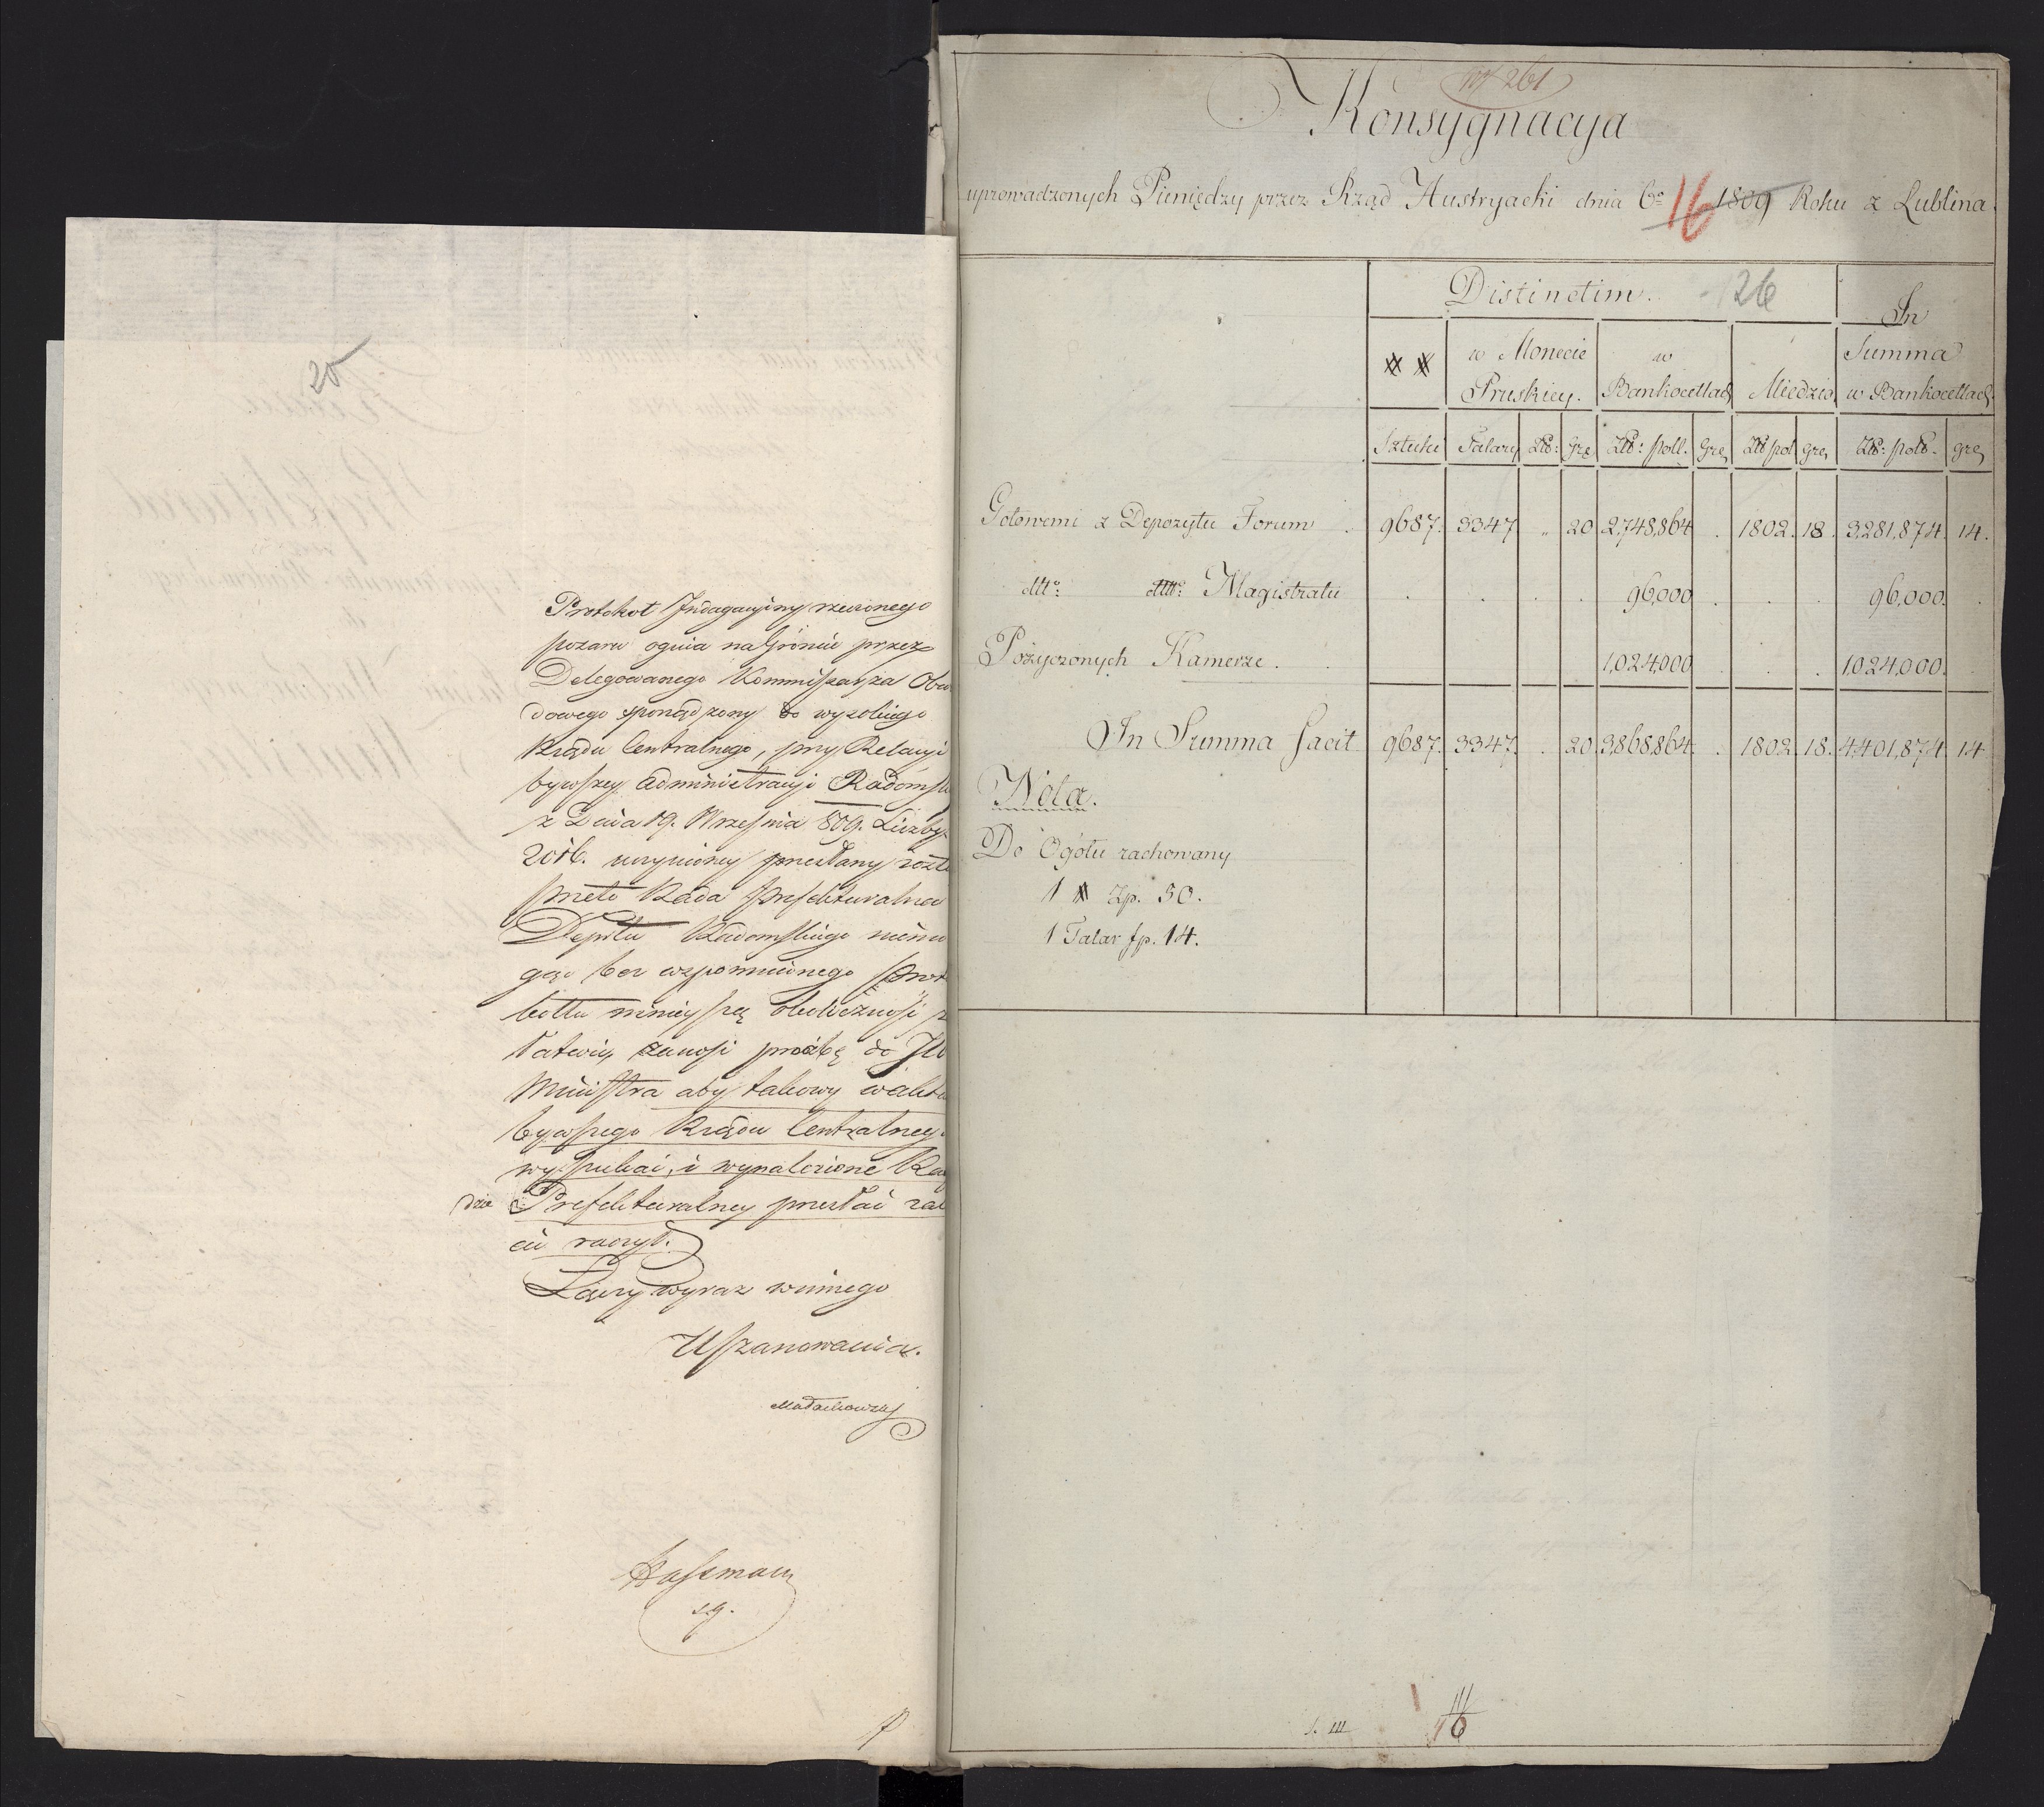 20
Protokoł Indagacyiny rzeczonego
pożaru ognia na Gróncie przez
Delegowanego Kommissarza Obw
dowego sporządzony do wysokiego
Rządu Centralnego, przy Relacyi
bywszey Administracyi Radomsk
z Dnia 19. Września 809. Liczby
2016. uczynioney przesłany został
przeto Rada Prefekturalna
Deptu Radomskiego niemo
gąc bez wspomnionego Proto
kołłu ninieyszą okoliczność
łatwić, zanosi prośbę do JW
Ministra aby takowy w akta
bywszego Rządu Centralnego
wyszukać, i wynalezione Ra
dzie Prefekturalney przesłać zal
cić raczył.
Łączy wyraz winnego
Uszanowania.
Małachowski
Hassman
sg.
261
Konsygnacyja
uprowadzonych Pieniędzy przez Rząd Austryacki dnia 6º 1809 Roku z Lublina.
16
Distinctim. 126
In Summa w Bankocetlach
w Monecie Pruskiey. w Bankocetlach Miedzią
Sztuki Talary Złt: Grę Złt: poll. Grę Złt pol gre, Złt: polt. gre,
Gotowemi z Depozytu Forum 9687. 3347. " 20 2,748,864 . 1802. 18. 3,281,874. 14.
dtto: dtto: Magistratu . . . . 96,000 . . . 96,000.
Pożyczonych Kamerze. 1,024,000 . . . 1,024,000.
In Summa facit 9687. 3347. . 20. 3,868,864. . 1802. 18. 4,401,874. 14
Nota.
Do Ogółu zachowany
1 # Zp. 50.
1 Talar fp. 14.
16